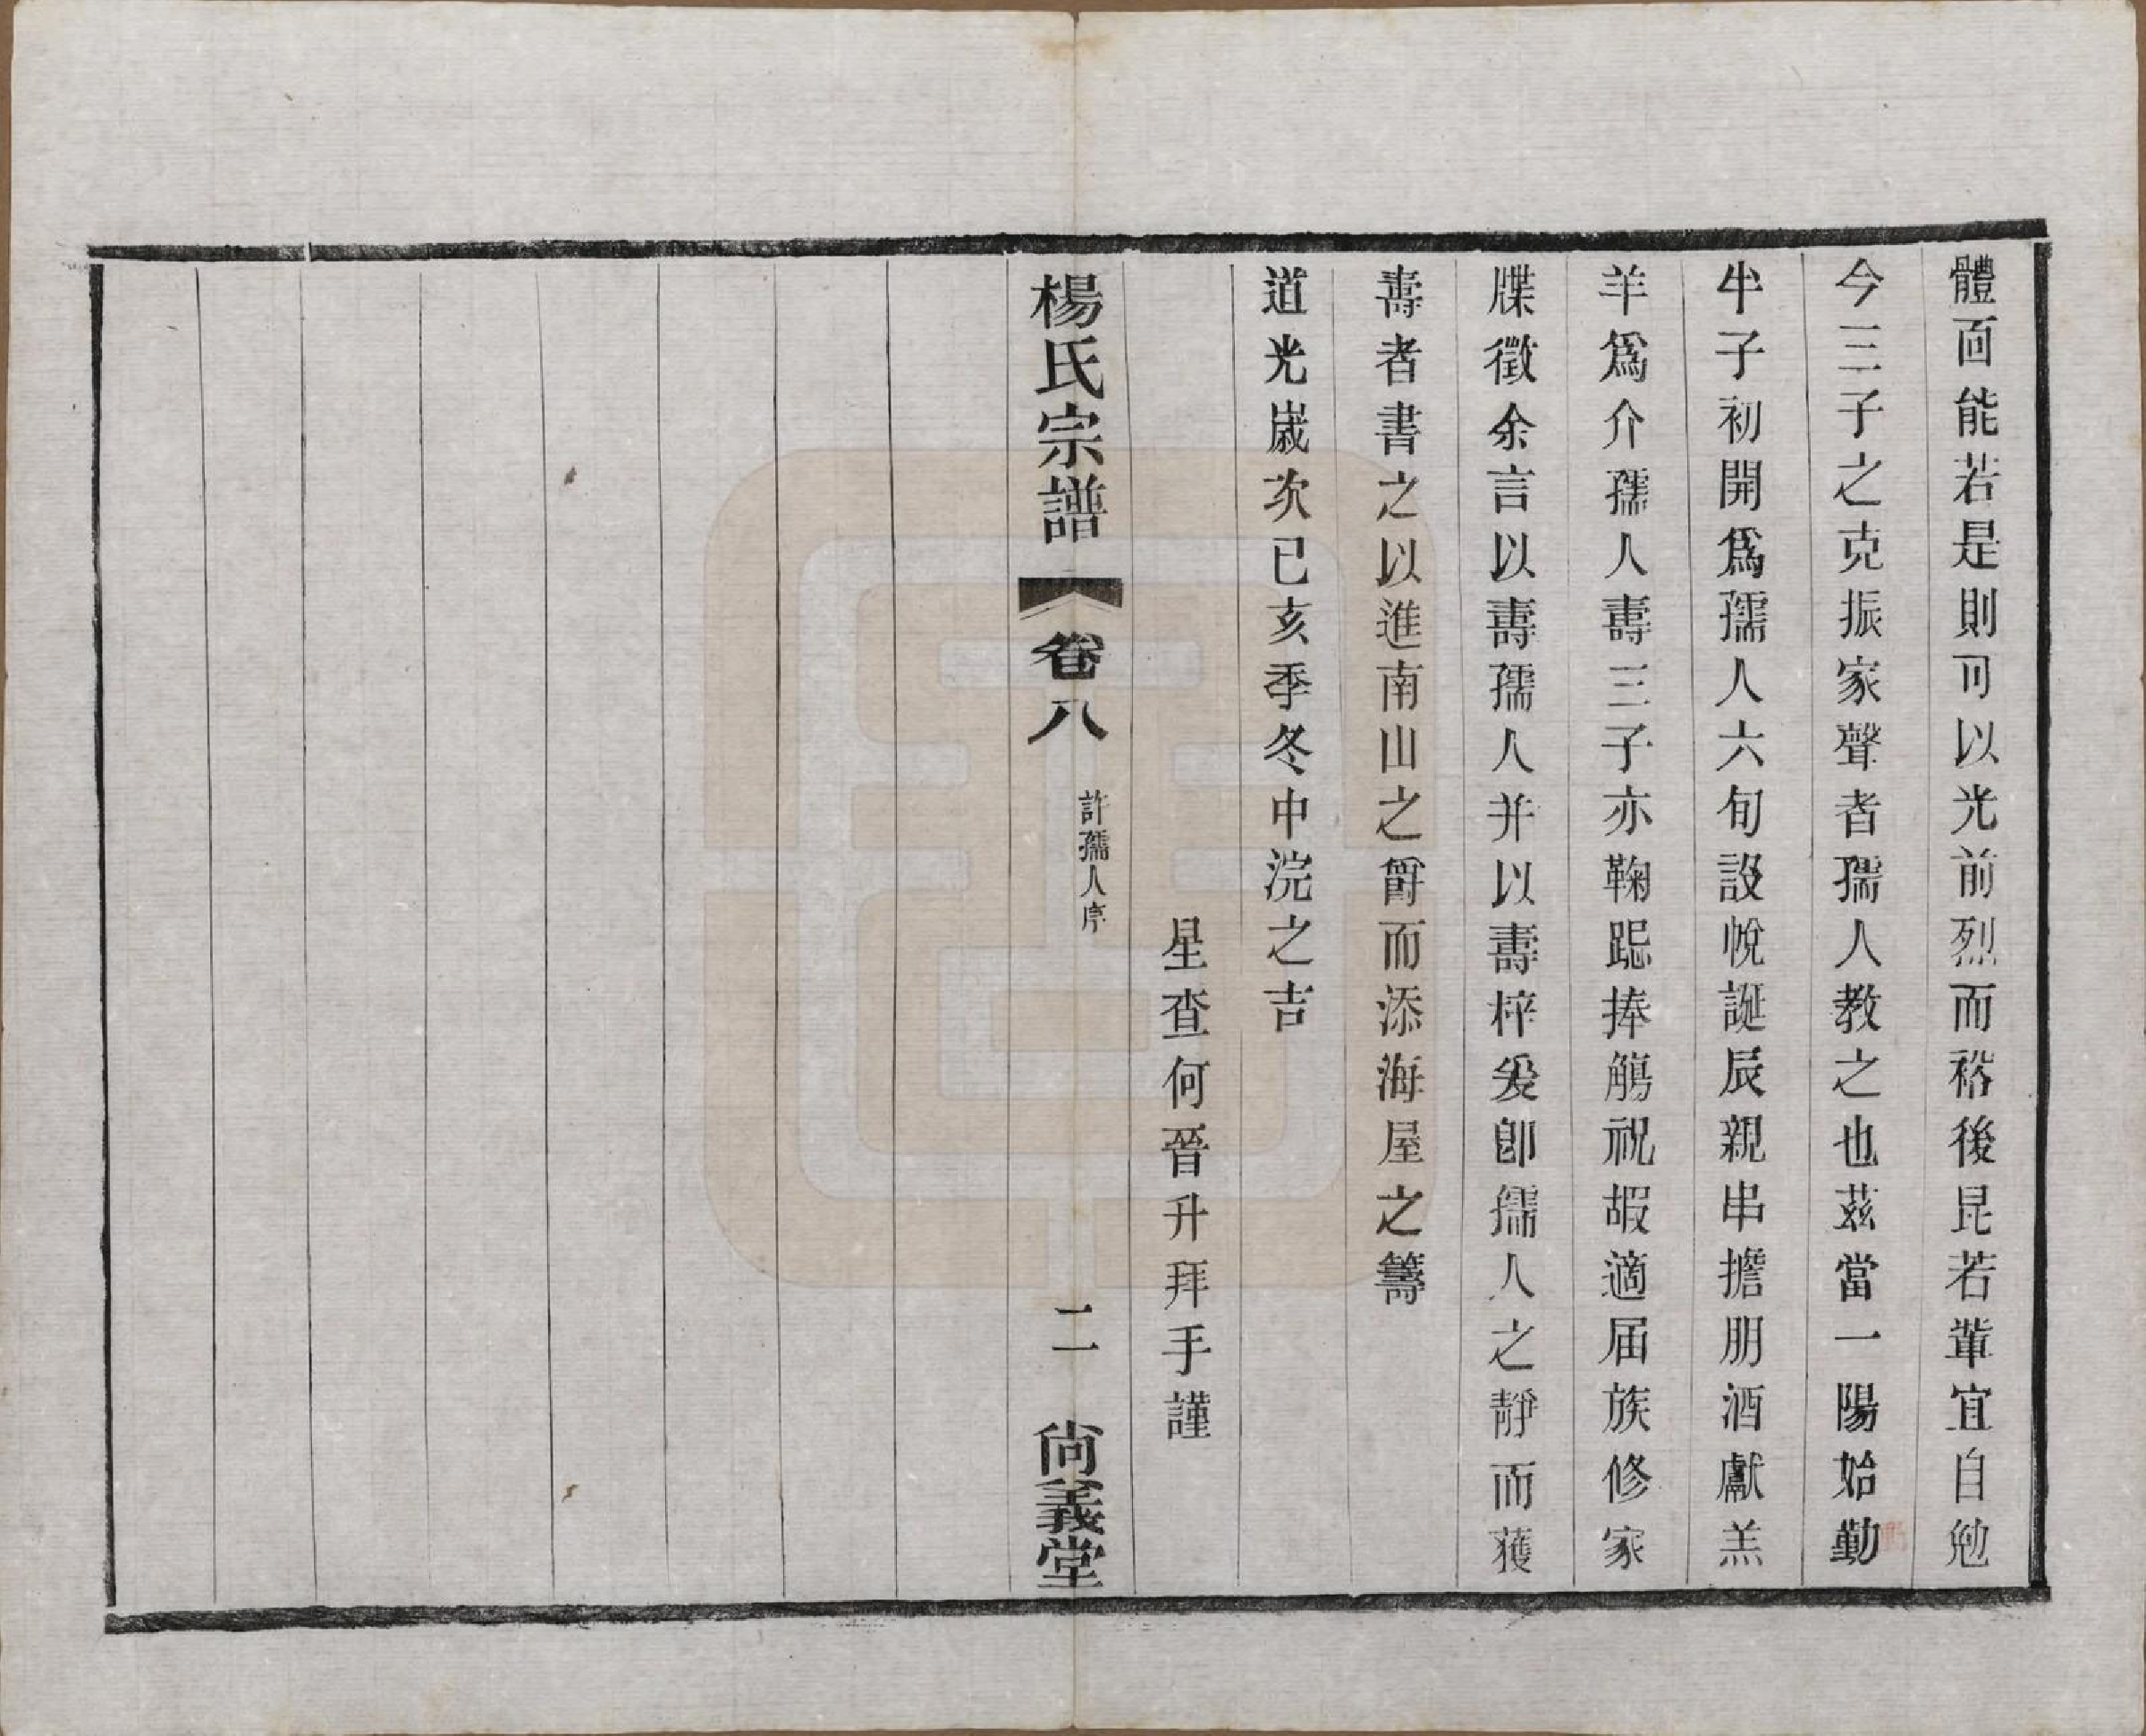 體面能若是則可以光前烈而裕後昆若輩宜自勉
今三子之克振家聲者孺人教之也茲當一陽始動
牛子初開爲孺人六旬設帨誕辰親串擔朋酒獻羔
羊爲介孺人壽三子亦鞠跽捧觴祝嘏適届族修家
牒徵余言以壽孺人并以壽梓爰卽孺人之靜而獲
壽者書之以進南山之爵而添海屋之籌
道光歲次已亥季冬中浣之吉
星查何晉升拜手謹
楊氏宗譜 卷八 許孺人序 二 尙義堂